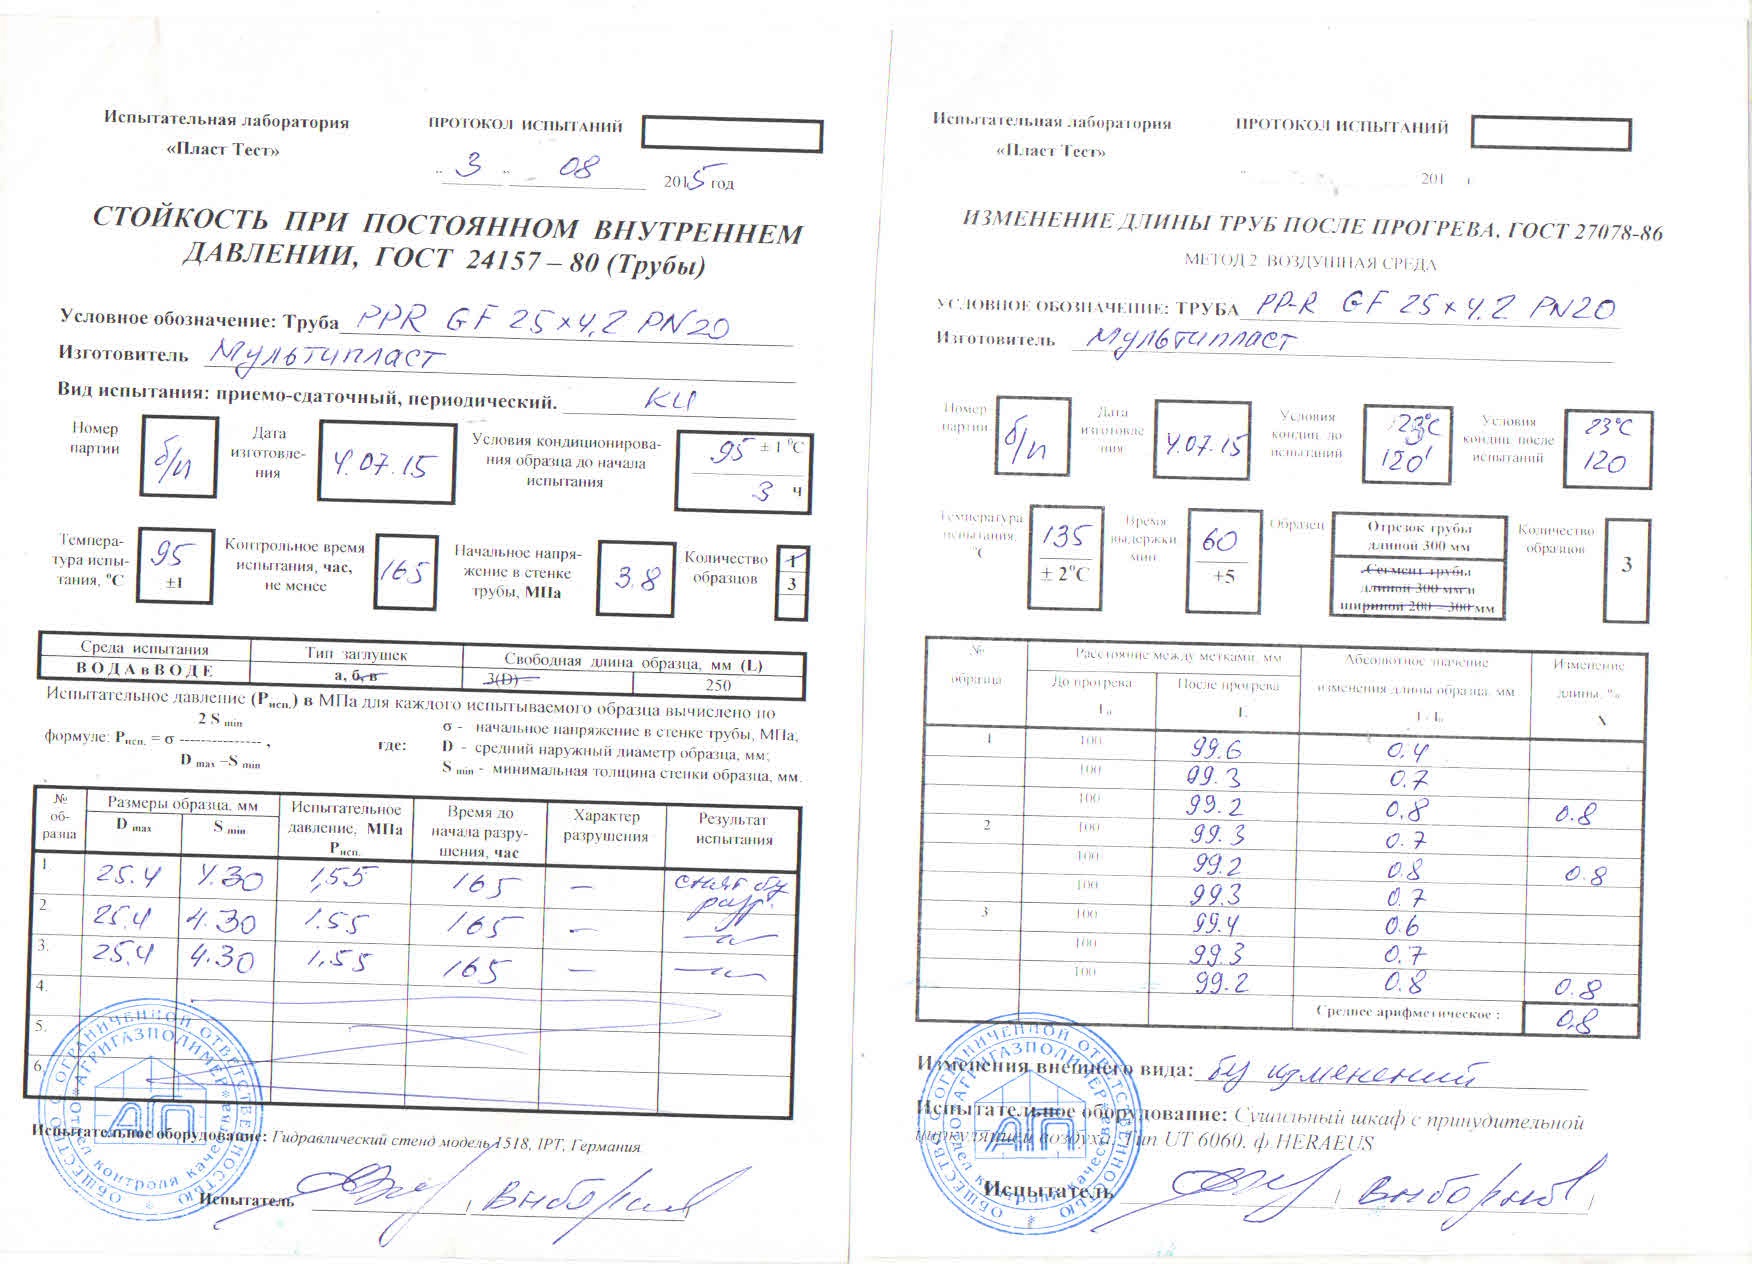 Испытательная лаборатория
«Пласт Тест»
ПРОТОКОЛ ИСПЫТАНИЙ
" 3 " 08 2015 год
СТОЙКОСТЬ ПРИ ПОСТОЯННОМ ВНУТРЕННЕМ
ДАВЛЕНИИ, ГОСТ 24157 – 80 (Трубы)
Условное обозначение: Труба PPR GF 25×4,2 PN20
Изготовитель Мультипласт
Вид испытания: приемо-сдаточный, периодический. КИ
Номер партии б/п
Дата изготовле-ния 4.07.15
Условия кондиционирова-ния образца до начала испытания 95 ± 1 ⁰С 3 ч
Темпера-тура испы-тания, ⁰С 95 ±1
Контрольное время испытания, час, не менее 165
Начальное напря-жение в стенке трубы, МПа 3.8
Количество образцов 1 3
Среда испытания Тип заглушек Свободная длина образца, мм (L)
ВОДА в ВОДЕ а, б, в 3(D) 250
Испытательное давление (Рисп.) в МПа для каждого испытываемого образца вычислено по
2 S min
формуле: Рисп. = σ --------------- ,
D max –S min
где:
σ - начальное напряжение в стенке трубы, МПа,
D - средний наружный диаметр образца, мм;
S min - минимальная толщина стенки образца, мм.
№ об-разца Размеры образца, мм D max S min Испытательное давление, МПа Рисп. Время до начала разру-шения, час Характер разрушения Результат испытания
1 25.4 4.30 1,55 165 – снят бз разр.
2 25.4 4.30 1.55 165 – –〃–
3. 25.4 4.30 1,55 165 – –〃–
4.
5.
6.
Испытательное оборудование: Гидравлический стенд модель 1518, IPT, Германия
Испытатель / Выборнов /
ОБЩЕСТВО С ОГРАНИЧЕННОЙ ОТВЕТСТВЕННОСТЬЮ
«АГРИГАЗПОЛИМЕР»
отдел контроля качества
АГП
Испытательная лаборатория
«Пласт Тест»
ПРОТОКОЛ ИСПЫТАНИЙ
201 г
ИЗМЕНЕНИЕ ДЛИНЫ ТРУБ ПОСЛЕ ПРОГРЕВА, ГОСТ 27078-86
МЕТОД 2 ВОЗДУШНАЯ СРЕДА
УСЛОВНОЕ ОБОЗНАЧЕНИЕ: ТРУБА PP-R GF 25×4,2 PN20
Изготовитель Мультипласт
Номер партии б/п
Дата изготовле ния 4.07.15
Условия кондиц. до испытаний 23°С 120'
Условия кондиц. после испытаний 23°С 120
Температура испытания, ⁰С 135 ± 2⁰С
Время выдержки мин 60 +5
Образец Отрезок трубы длиной 300 мм
Сегмент трубы длиной 300 мм и шириной 200 – 300 мм
Количество образцов 3
№ образца Расстояние между метками, мм До прогрева L₀ После прогрева L Абсолютное значение изменения длины образца, мм L - L₀ Изменение длины, %
1 100 99.6 0,4
100 99.3 0.7
100 99.2 0,8 0.8
2 100 99.3 0.7
100 99.2 0.8 0.8
100 99.3 0.7
3 100 99.4 0.6
100 99.3 0.7
100 99.2 0.8 0.8
Среднее арифметическое : 0,8
Изменения внешнего вида: бз изменений
Испытательное оборудование: Сушильный шкаф с принудительной
циркуляцией воздуха, Тип UT 6060, ф.HERAEUS
Испытатель / Выборнов /
ОБЩЕСТВО С ОГРАНИЧЕННОЙ ОТВЕТСТВЕННОСТЬЮ
«АГРИГАЗПОЛИМЕР»
отдел контроля качества
АГП